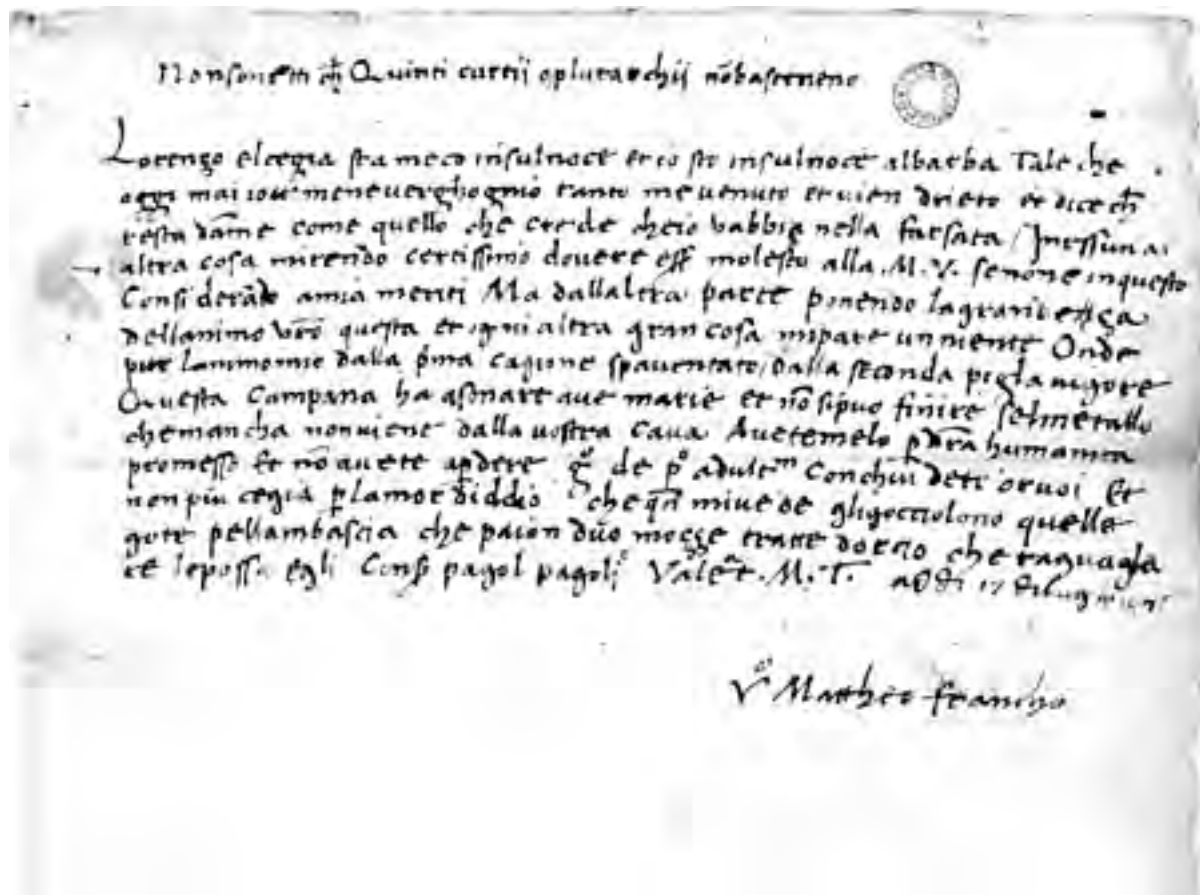 Non sonetti ch̄ Quinti curtii o plutarchii nō basterieno
Lorenzo el cegia sta meco in sul noce et io sto in sul noce al barba Tale che
oggi mai iovi mene verghognio tanto me venuto et vien drieto et dice ch̄
resta dāme come quello che crede che io vabbia nella farsata / Inessuna
altra cosa mirendo certissimo dovere esser molesto alla .M.V. senone in questo
Considerāte a mia meriti Ma dallaltra parte ponendo la grandeça
dellanimo vr̄o questa et ogni altra gran cosa mi pare un niente Onde
pur lammonie dalla p̄ma cagione spaventato / dalla seconda pigla vigore
Questa Campana ha asonare ave marie et nō si puo finire sel metallo
che mancha non viene dalla vostra cava Avetemelo humanita
promesso Et nō avete de adult Conchiudete or voi Et
non piu cegia p lamor diddio che qn̄ mi vede gli gocciolono quelle
gote pell ambascia che paion duo mezze tratte che raguagla
te le possa egli pagol pagoli Vale .M.T. adi 17 di
Vº Mattheo francho